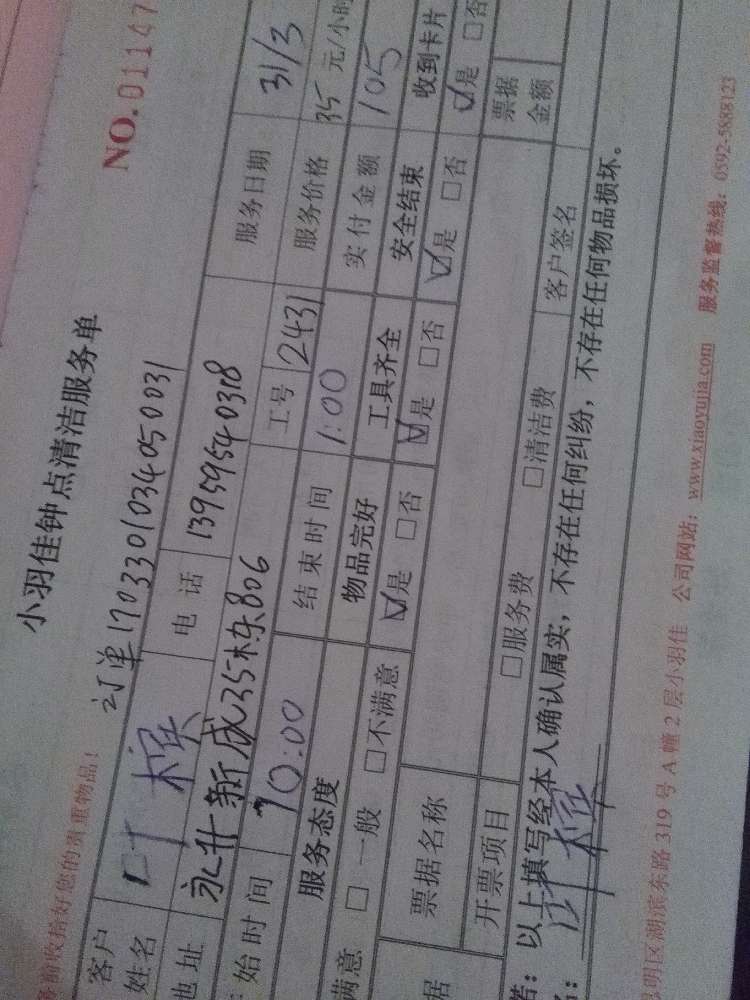 小羽佳钟点清洁服务单
NO.01147
收拾好您的贵重物品！
订单1703301034050031
客户姓名 叶
电话 13959540318
服务日期 31/3
地址 永升新城35栋806
工号 2431
服务价格 35 元/小时
始时间 10:00
结束时间 1:00
实付金额 105
服务态度
物品完好
工具齐全
安全结束
收到卡片
满意 □ 一般 □不满意
☑是 □否
☑是 □否
☑是 □否
☑是 □否
票据名称
票据金额
开票项目
□服务费 □清洁费
客户签名
：以上填写经本人确认属实，不存在任何纠纷，不存在任何物品损坏。
明区湖滨东路 319 号 A 幢 2 层小羽佳 公司网站：www.xiaoyujia.com 服务监督热线：0592-5888123